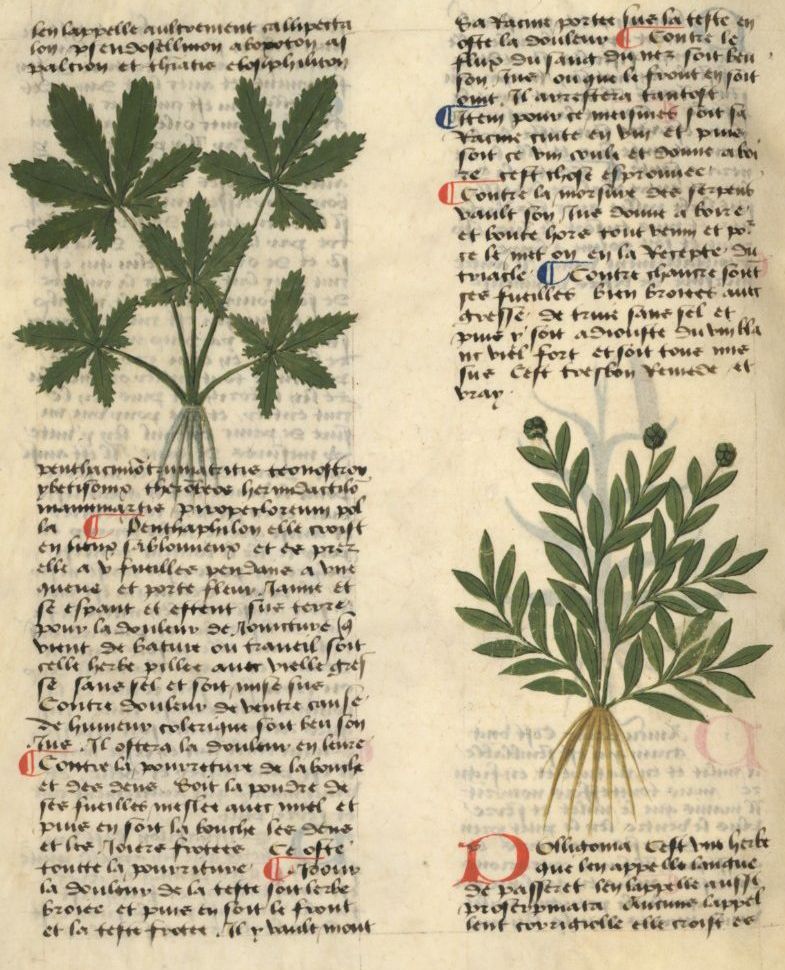 len lappelle aultrement callipecta
lon pseudosellinon abopoton as
palcion et thiatis etosiphiliton
penthacinuō trumatritis teonostrov
ybetisomo therōbeos hermdactilō
mammartis propectorenm pol
la ¶ Penthaphilon elle croist
en lieux sablonneux et es prez
elle a v fueilles pendans a vne
queue et porte fleur Jaune et
se espant et estent sus terre
pour la douleur de Joincture q̄
vient de bature ou traueil soit
celle herbe pillee auec vielle gres
se sans sel et soit mise sus
Contre douleur de ventre cause
de humeur colerique soit beu son
Jus . Il ostera la douleur en leure
¶ Contre la pourreture de la bouche
et des dens . soit la pouldre de
ses fueilles meslee auec miel et
puis en soit la bouche les dens
et les Joieres frotees Ce oste
toutte la pourriture ¶ Pour
la douleur de la teste soit lerbe
broiee et puis en soit le front
et la teste frotee . Il y vault mont
Sa Racine portee sus la teste en
oste la douleur ¶ Contre le
flux du sang du nez soit beu
son Jus / ou que le front en soit
oint . Il arrestera tantost
¶ Item pour ce meismes soit sa
Racine cuite en vin et puis
soit ce vin coule et donne a boi
re cest chose esprouuee
¶ Contre la morsure des serpens
vault son Jus donne a boire
et boute hors tout venin et por
ce le met on en la Recepte du
triacle ¶ Contre chancre soient
ses fueilles bien broiees auec
gresse de truie sans sel et
puis y soit adiouste du vin bla
nc viel fort et soit tout mis
sus Cest tresbon Remede et
vray .
Polligonia Cest vne herbe
que len appelle langue
de passeret len lappelle aussi
proserpinata Aucuns lappel
lent corrigiolle elle croist es